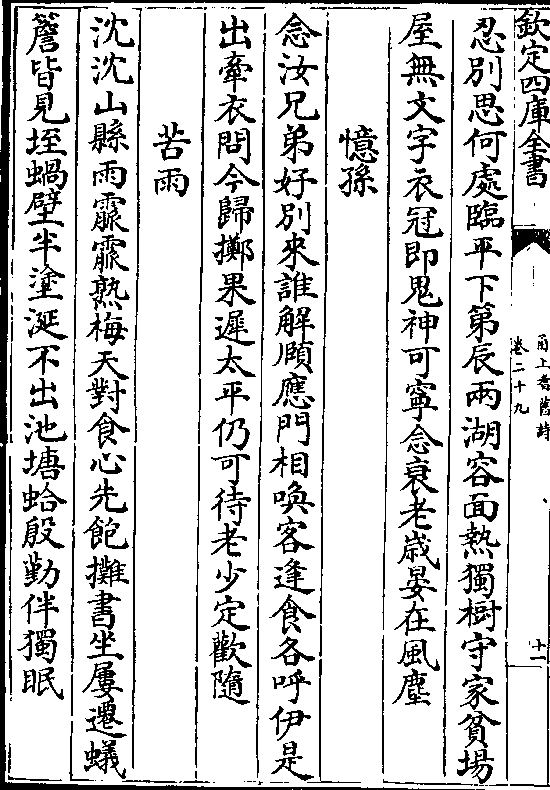 欽定四庫全書
甬上耆舊詩
卷二十九
十一
忍別思何處臨平下第辰兩湖容面熱獨樹守家貧場
屋無文字衣冠即鬼神可寧念衰老歳晏在風塵
憶孫
念汝兄弟好別來誰解頤應門相喚客逢食各呼伊是
出牽衣問今歸擲果遲太平仍可待老少定歡隨
苦雨
沈沈山縣雨霢霢熟梅天對食心先飽攤書坐屢遷蟻
簷皆見垤蝸壁半塗涎不出池塘蛤殷勤伴獨眠